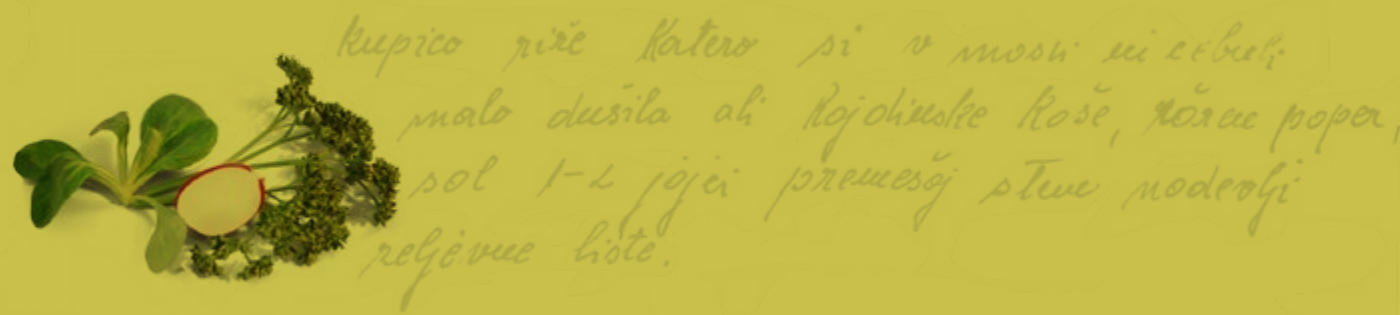 kupico riže katero si v masti in čebuli
malo dušila ali kajdinske kaše, poper,
sol 1-2 jajci premešaj s tem nadevlji
zeljevne liste.